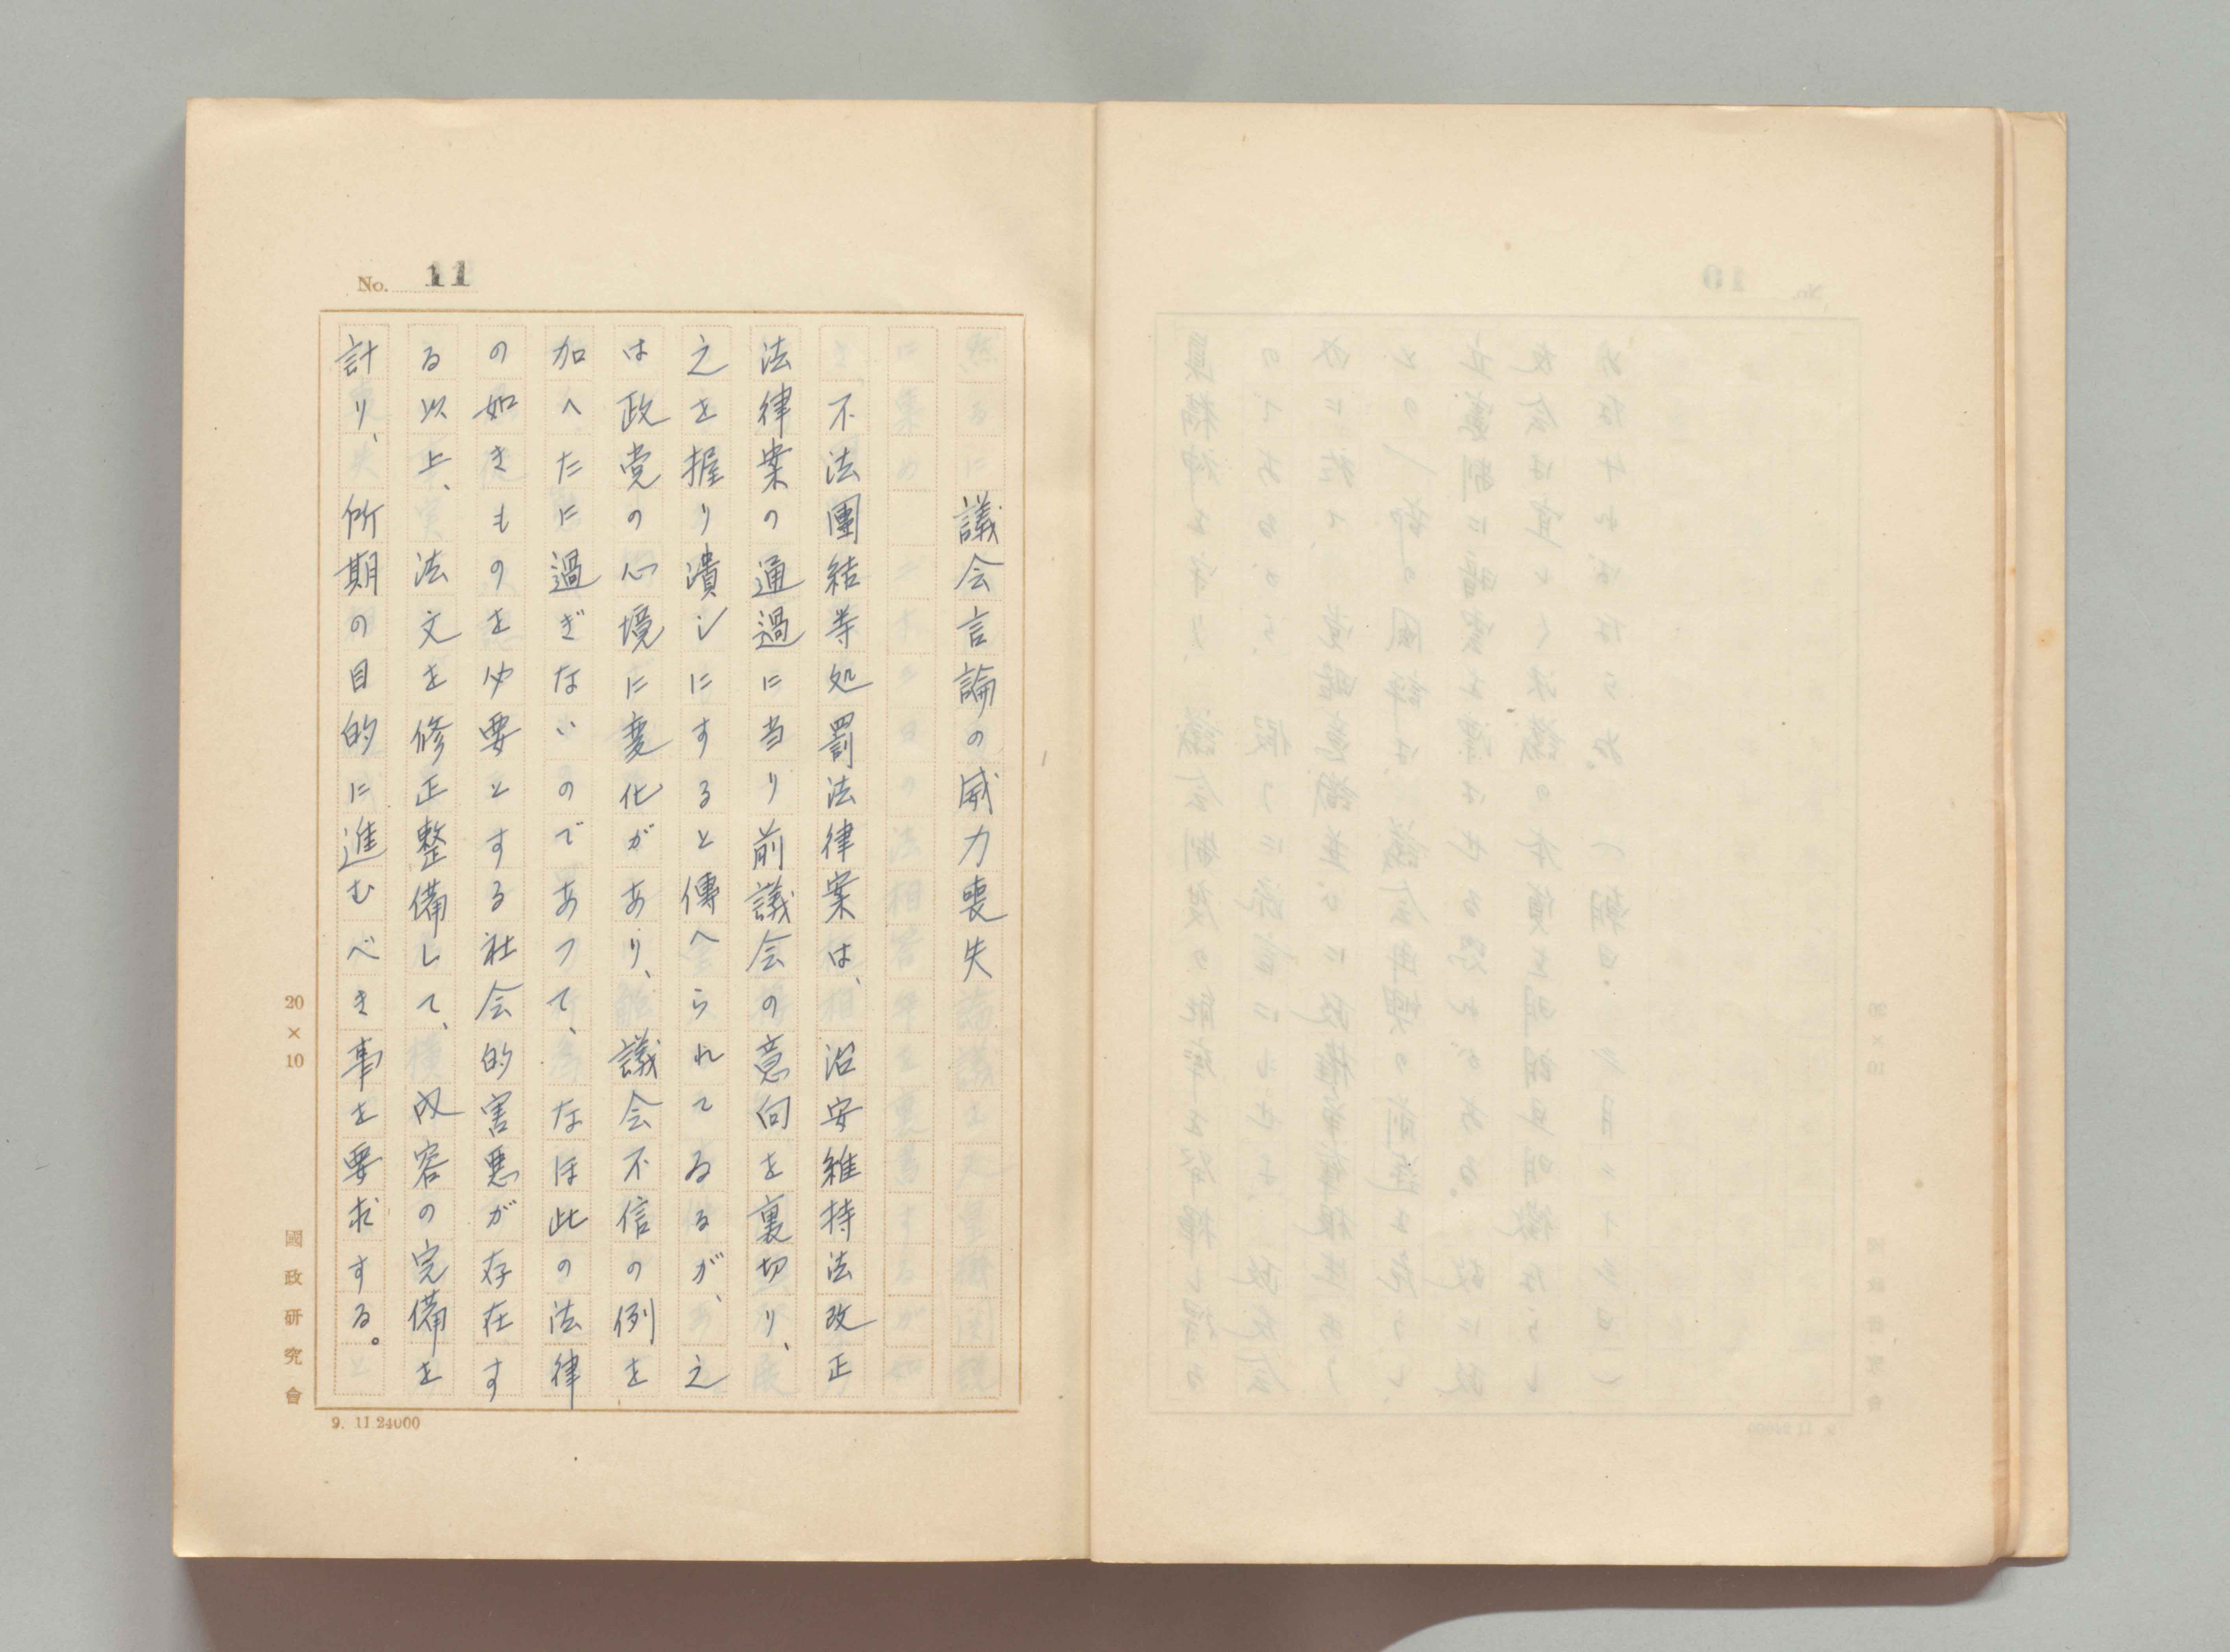 No. 11
議会言論の威力喪失
不法團結等処罰法律案は、治安維持法改正
法律案の通過に当り前議会の意向を裏切り、
之を握り潰しにすると傳へられてゐるが、之
は政党の心境に変化があり、議会不信の例を
加へたに過ぎないのであつて、なほ此の法律
の如きものを必要とする社会的害悪が存在す
る以上、法文を修正整備して、内容の完備を
計り、所期の目的に進むべき事を要求する。
20×10
國政研究會
9. 11 24000